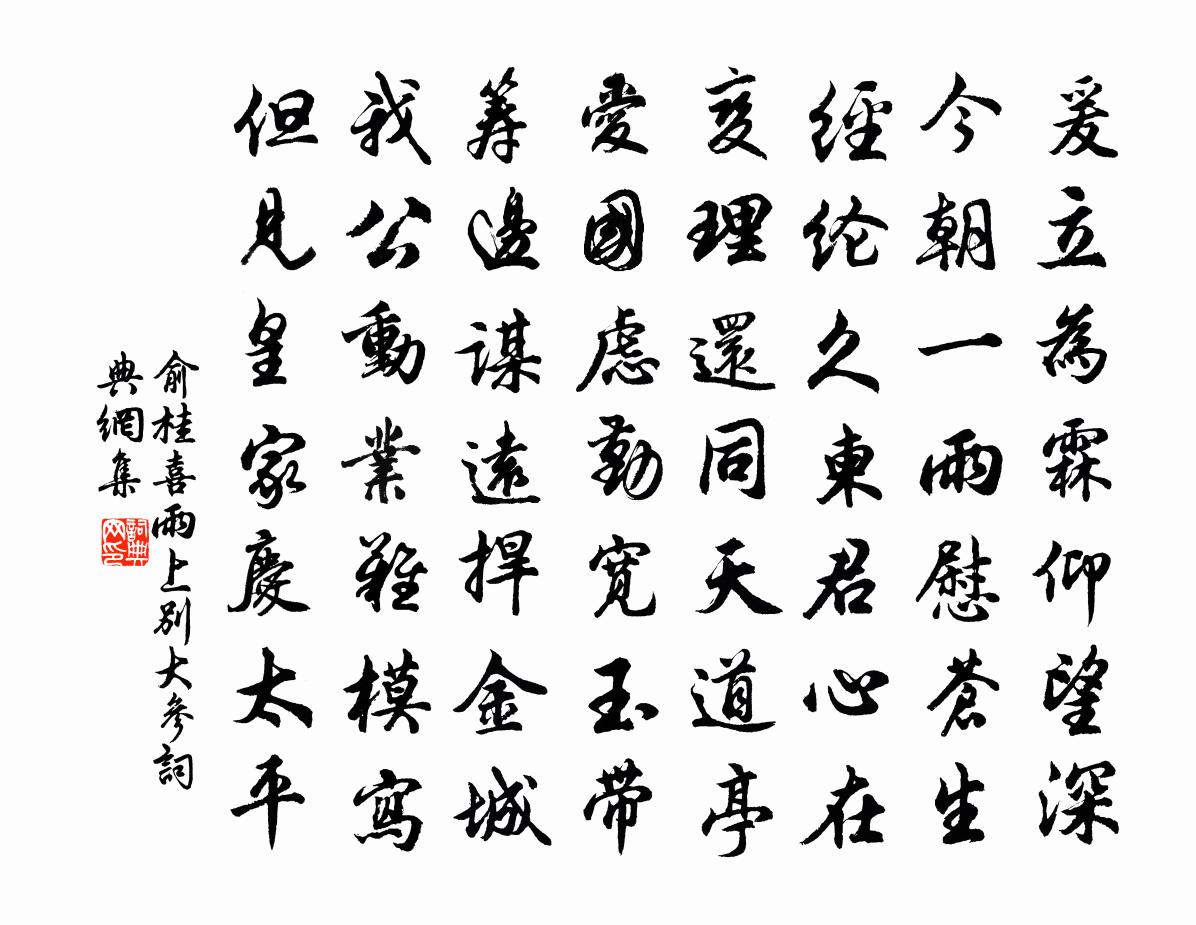 爰立為霖仰望深
今朝一雨慰蒼生
經纶久東君心在
燮理還同天道亭
愛國慮勤寬玉帶
籌邊謀遠捍金城
我公動業難模寫
但見皇家慶太平
俞桂喜雨上別大參詞
典網集
詞典网印